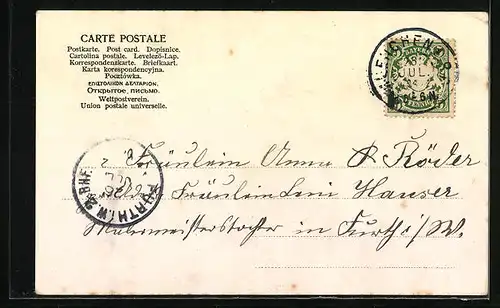 CARTE POSTALE
Postkarte. Post card. Dopisnice.
Cartolina postale. Levelező-Lap.
Korrespondenzkarte. Briefkaart.
Karta korespondencyjna.
Pocztówka.
ΕΠΙΣΤΟΛΙΚΟΝ ΔΕΛΤΑΡΙΟΝ.
Открытое письмо.
Weltpostverein.
Union postale universelle.
JUL.
PFENNIG
Fräulein Anna Röder
Fräulein Leni Hauser
Malermeisterstochter in Furth i/W.
FURTH i. W. BHF.